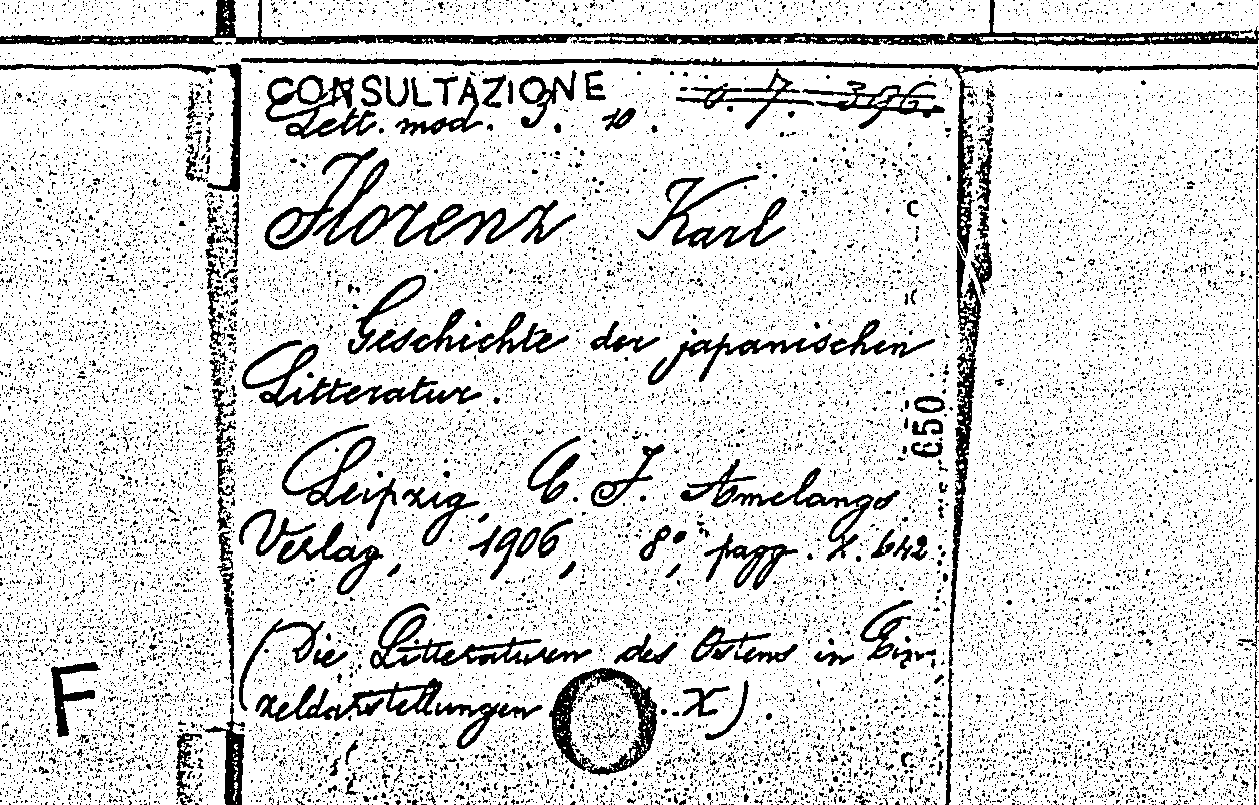 CONSULTAZIONE 0. 7. 396.
Lett. mod. J. 10.
Florenz Karl
Geschichte der japanischen
Litteratur.
Leipzig, C. F. Amelangs
Verlag, 1906, 8°, pagg. X. 642
(Die Litteraturen des Ostens in Ein-
zeldarstellungen X).
650
F